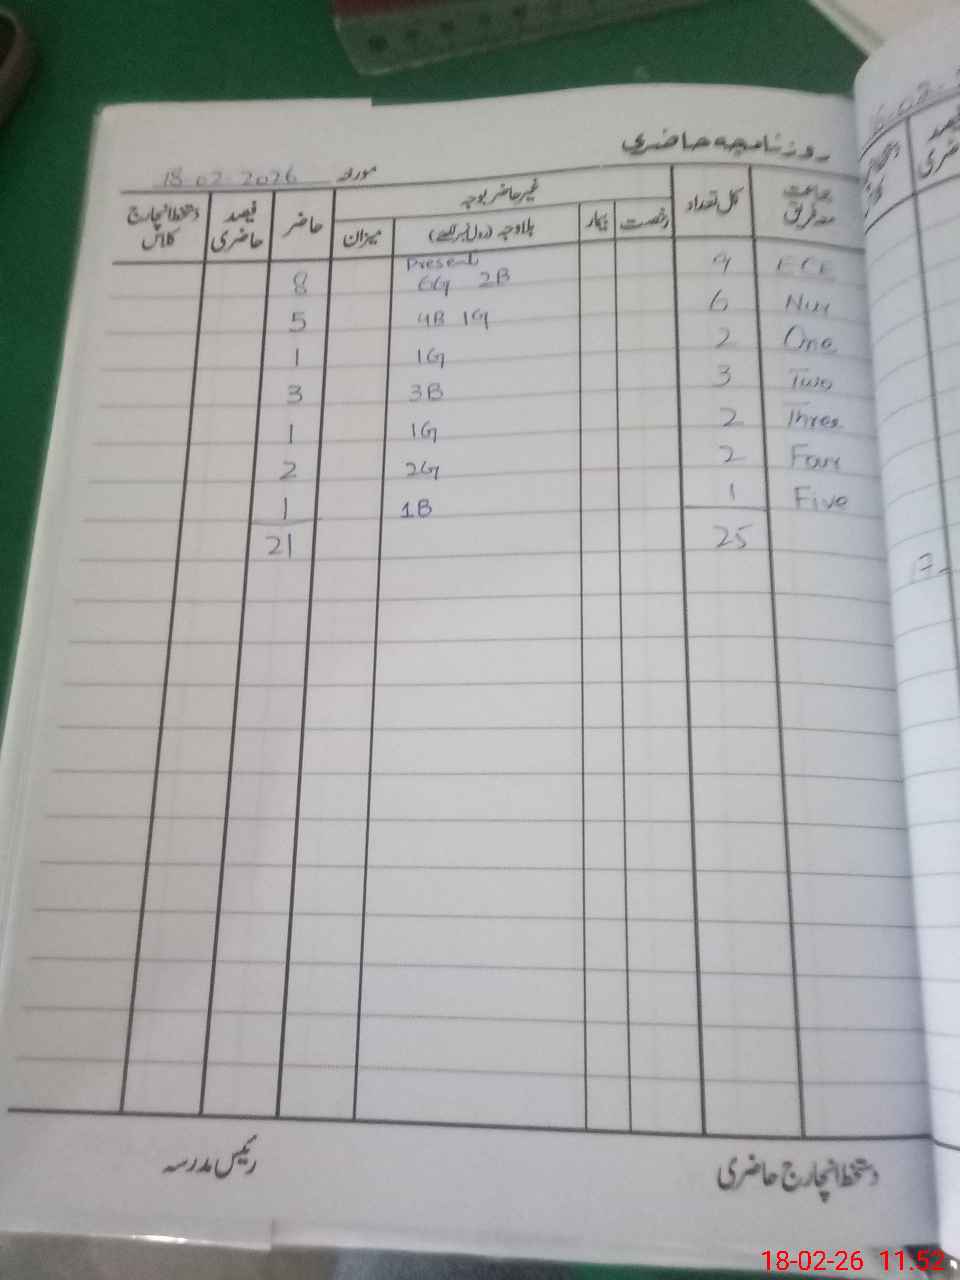 روزنامچہ حاضری
مورخہ 18-02-2026
جماعت مدفریق کل تعداد غیر حاضر بوجہ حاضر فیصد حاضری دستخط انچارج کلاس
رخصت بیمار بلاوجہ (رول نمبر لکھیے) میزان
Present
ECE 9 6G 2B 8
Nur 6 4B 1G 5
One 2 1G 1
Two 3 3B 3
Three 2 1G 1
Four 2 2G 2
Five 1 1B 1
25 21
دستخط انچارج حاضری رئیس مدرسہ
17-
18-02-26 11.52